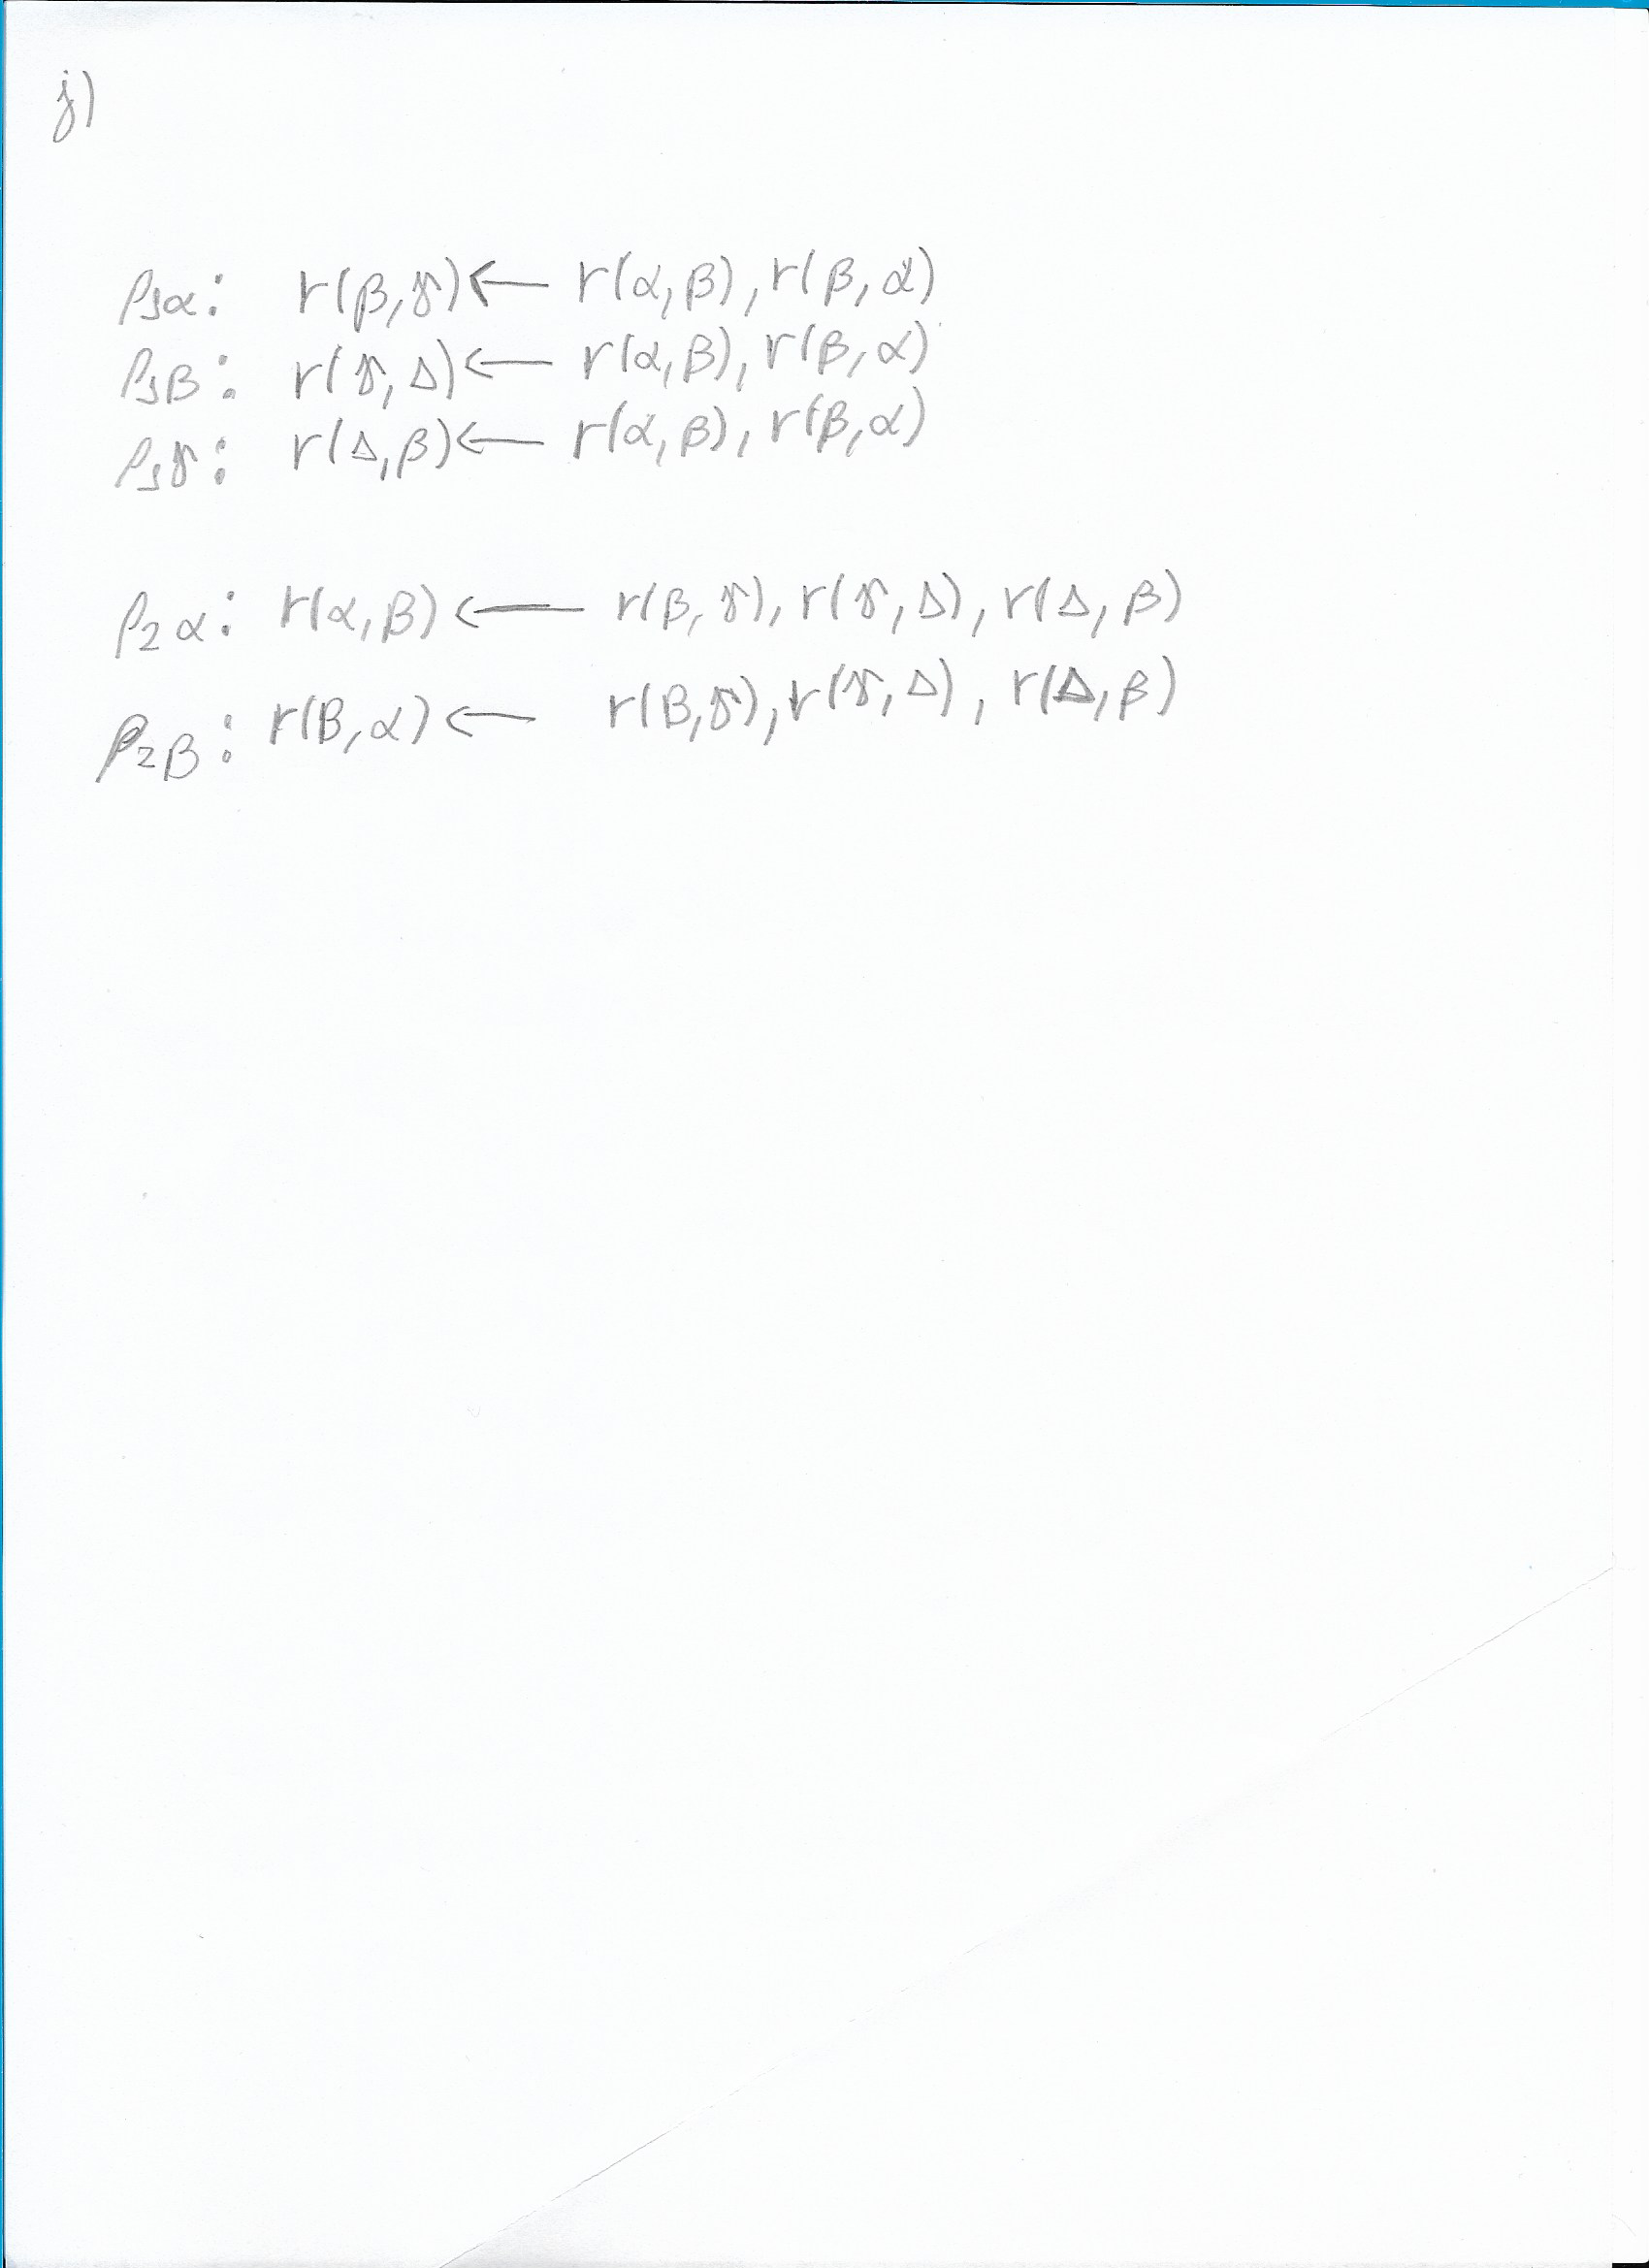 j)
ρ₁α: r(β,γ) ← r(α,β), r(β,α)
ρ₁β: r(γ,Δ) ← r(α,β), r(β,α)
ρ₁γ: r(Δ,β) ← r(α,β), r(β,α)
ρ₂α: r(α,β) ← r(β,γ), r(γ,Δ), r(Δ,β)
ρ₂β: r(β,α) ← r(β,γ), r(γ,Δ), r(Δ,β)